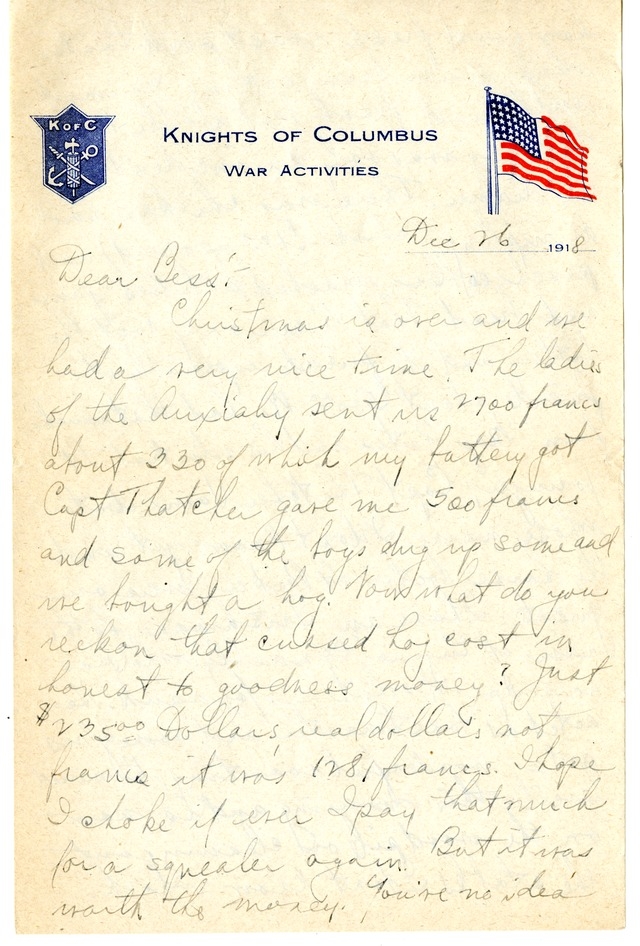 K OF C
KNIGHTS OF COLUMBUS
WAR ACTIVITIES
Dec 26 1918
Dear Bess:-
Christmas is over and we
had a very nice time. The ladies
of the Auxiliary sent us 2700 francs
about 330 of which my battery got
Capt Thatcher gave me 500 francs
and some of the boys dug up some and
we bought a hog. Now what do you
reckon that cussed hog cost in
honest to goodness money? Just
$235.00 Dollars real dollars not
francs it was 1281 francs. I hope
I choke if ever I pay that much
for a squealer again. But it was
worth the money. You've no idea